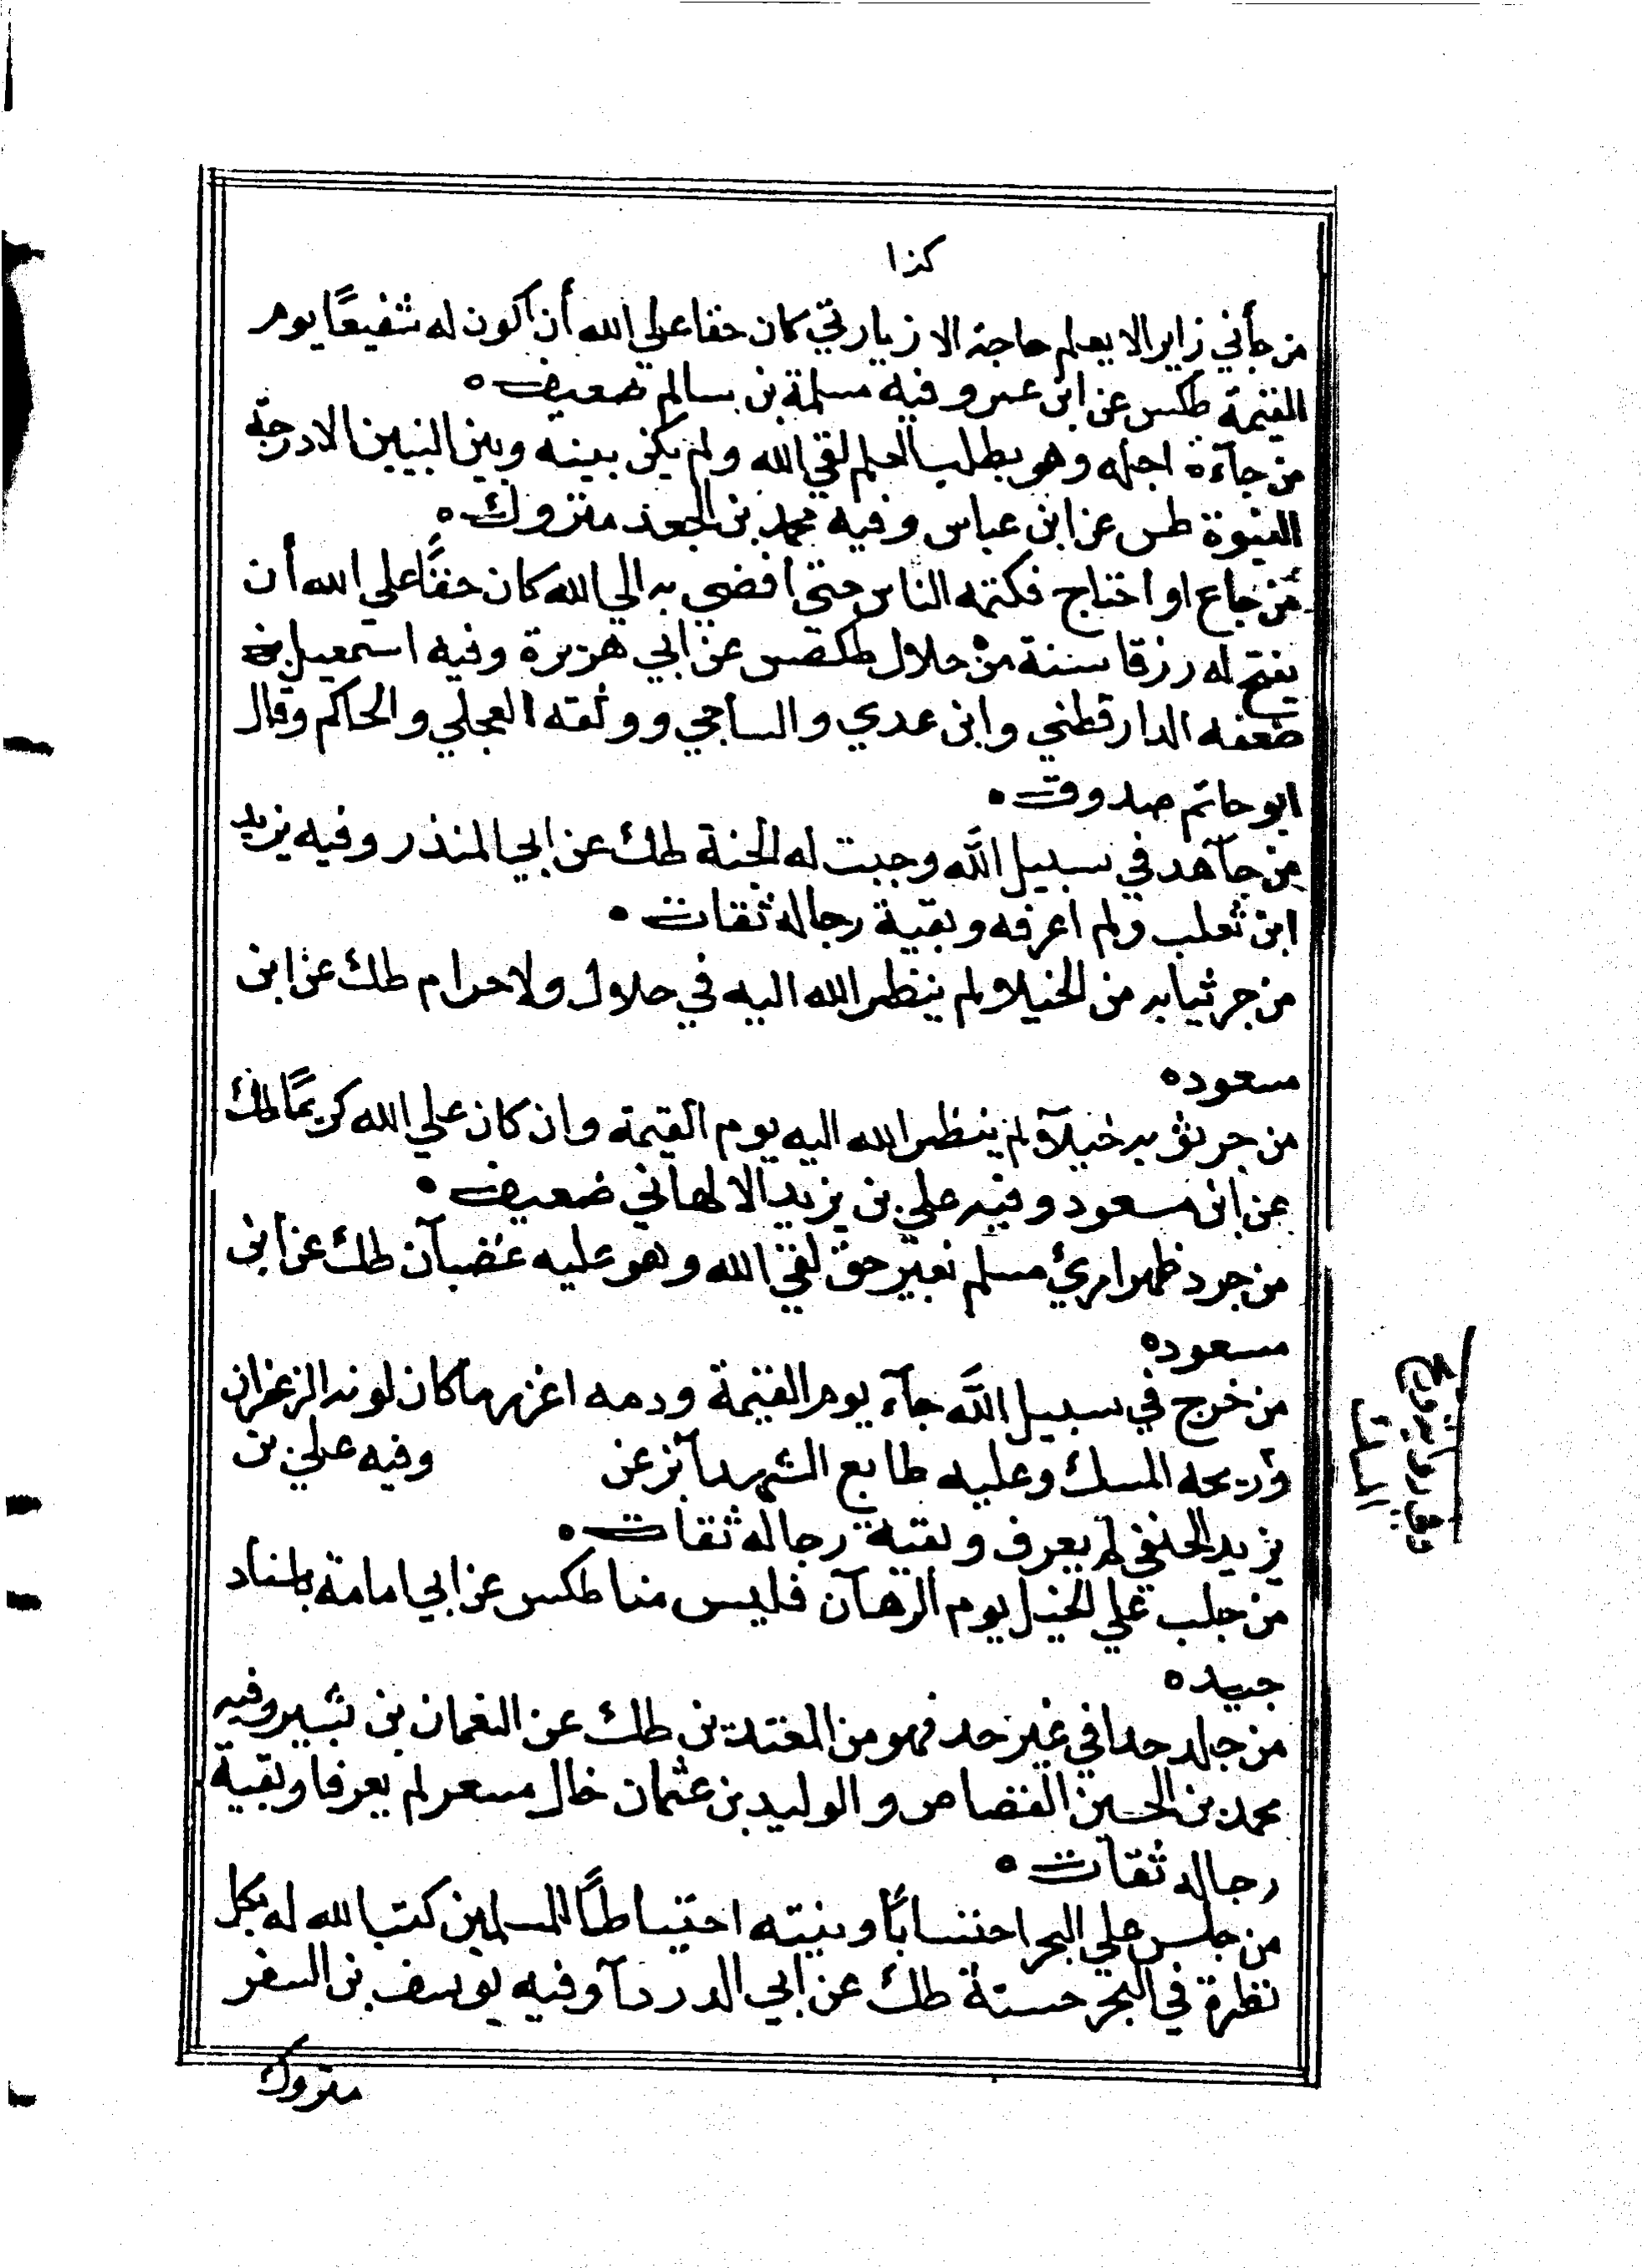 كذا
من جأني زايرا لا يعلم حاجة الا زيارتي كان حقا علي الله أن أكون له شفيعًا يوم
القيمة طكس عن ابن عمر وفيه مسلمة بن سالم ضعيف ه
من جآءه اجله وهو يطلب العلم لقي الله ولم يكن بينه وبين النبيين الا درجة
النبوة طس عن ابن عباس وفيه محمد بن الجعد متروك ه
من جاع او احتاج فكتمه الناس حتى افضي به الي الله كان حقًّا علي الله أن
يفتح له رزقا سنة من حلال طكصس عن ابي هريرة وفيه اسمعيل بن
ضعفه الدارقطني وابن عدي والساجي ووثقه العجلي والحاكم وقال
ابو حاتم صدوق ه
من جآهد في سبيل الله وجبت له الجنة طك عن ابي المنذر وفيه يزيد
ابن ثعلب ولم اعرفه وبقية رجاله ثقات ه
من جر ثيابه من الخيلاء لم ينظر الله اليه في حلال ولا حرام طك عن ابن
مسعود ه
من جر ثوبه خيلآء لم ينظر الله اليه يوم القيمة وان كان علي الله كريمًا طك
عن ابن مسعود وفيه علي بن يزيد الالهاني ضعيف ه
من جرد ظهر امرئ مسلم بغير حق لقي الله وهو عليه غضبآن طك عن ابن
مسعود ه
من خرج في سبيل الله جآء يوم القيمة ودمه اغزر ما كان لونه الزعفران
وريحه المسك وعليه طابع الشهدآ بز عن وفيه علي بن
يزيد الحنفي لم يعرف وبقية رجاله ثقات ه
من جلب علي الخيل يوم الرهآن فليس منا طكس عن ابي امامة باسناد
جيد ه
من جلد حدا في غير حد فهو من المعتدين طك عن النعمان بن بشير وفيه
محمد بن الحسين القصاص والوليد بن عثمان خال مسعر لم يعرفا وبقية
رجاله ثقات ه
من جلس علي البحر احتسابًا ونيته احتياطًا للمسلمين كتب الله له بكل
نظرة في البحر حسنة طك عن ابي الدردآ وفيه يوسف بن السفر
متروك